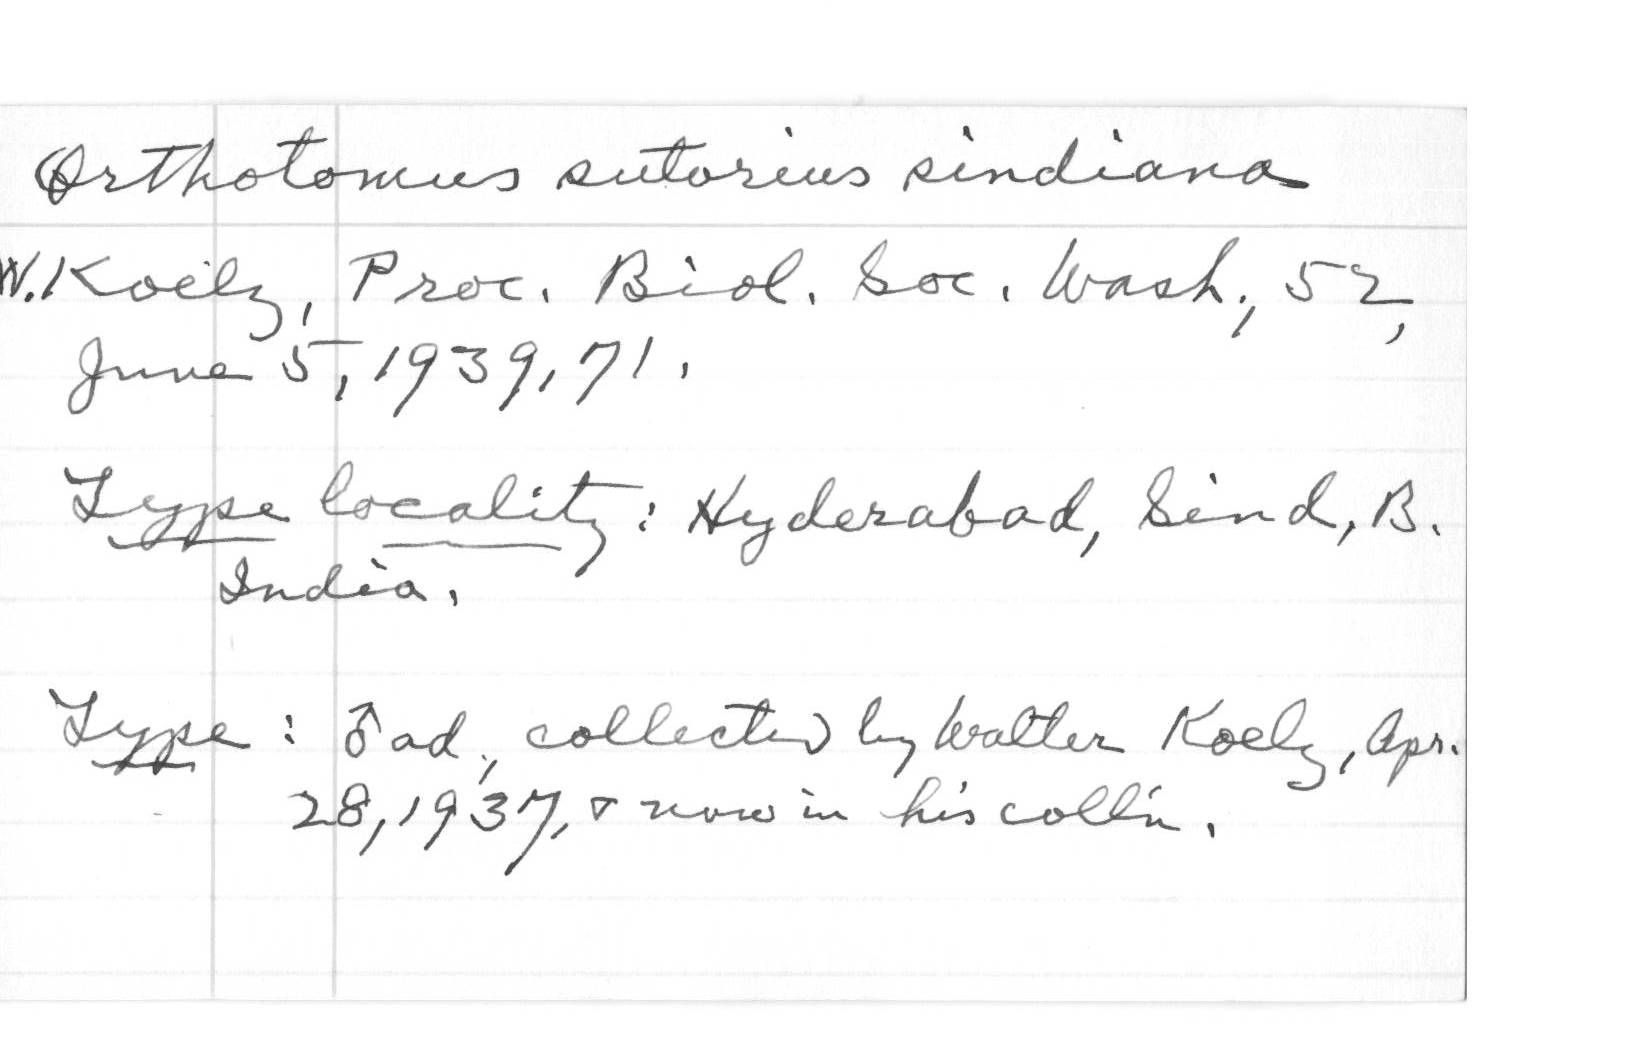 Orthotomus sutorius sindiana
W. Koelz, Proc. Biol. Soc. Wash., 52,
June 5, 1939, 71.
Type locality: Hyderabad, Sind, B.
India.
Type: ♂ ad., collected by Walter Koelz, Apr.
28, 1937, & now in his coll'n.